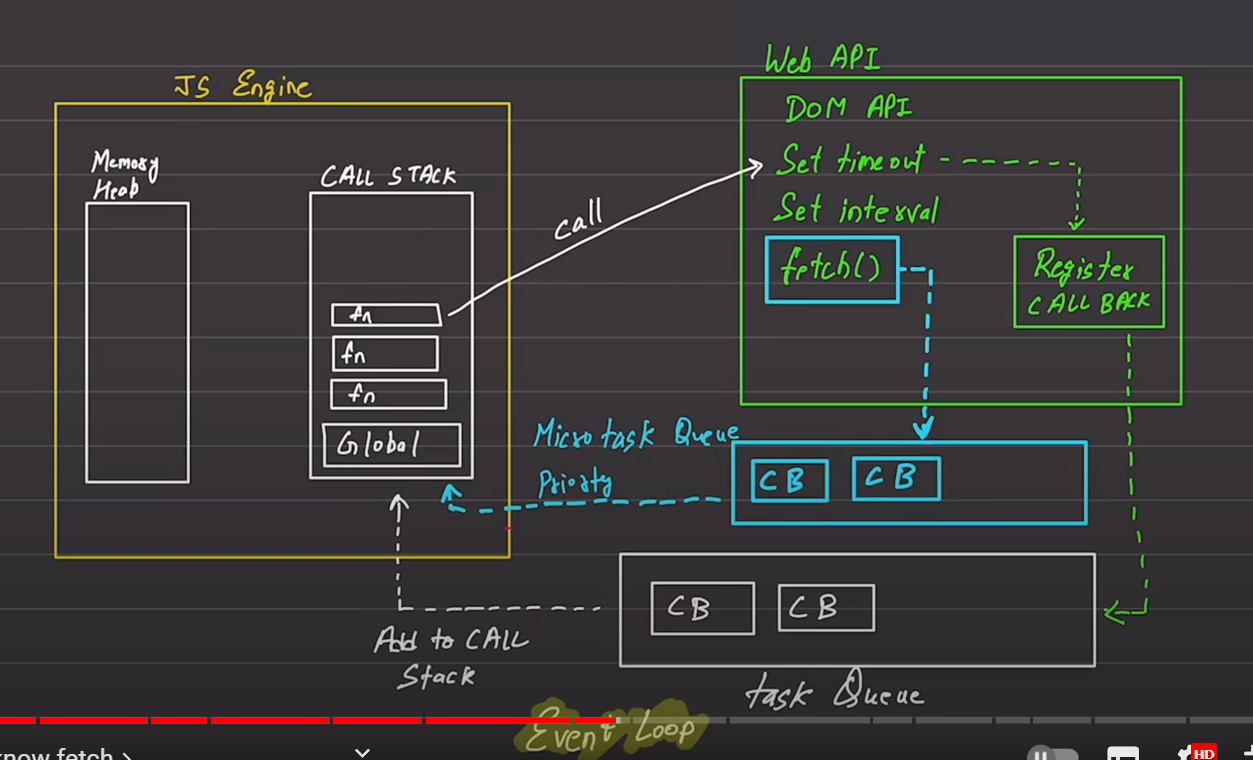 JS Engine
Memory
Heap
CALL STACK
fn
fn
fn
Global
call
Web API
DOM API
Set timeout
Set interval
fetch()
Register
CALL BACK
Micro task Queue
Priority
CB
CB
CB
CB
Add to CALL
Stack
task Queue
Event Loop
know fetch >
HD